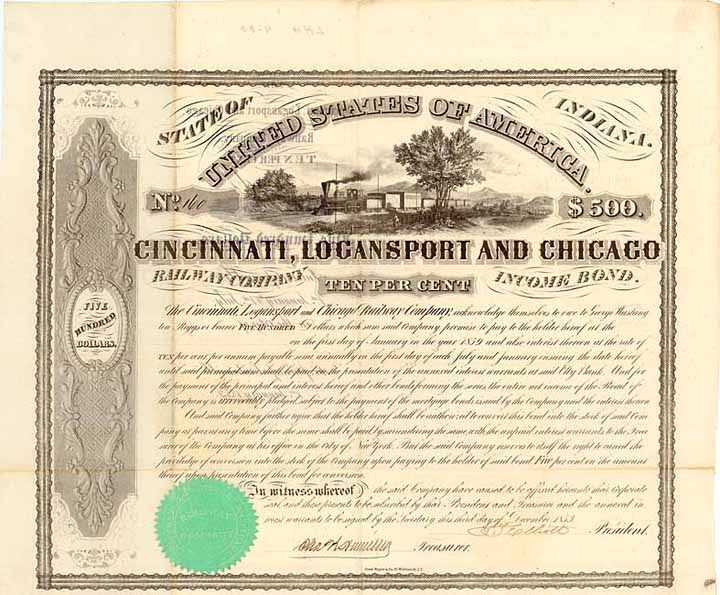 STATE OF INDIANA.
UNITED STATES OF AMERICA.
No. 160 $500.
CINCINNATI, LOGANSPORT AND CHICAGO
RAILWAY COMPANY TEN PER CENT INCOME BOND.
FIVE
HUNDRED
DOLLARS.
The Cincinnati, Logansport and Chicago Railway Company, acknowledge themselves to owe to George Washing
ton Riggs or bearer FIVE HUNDRED Dollars which sum said Company promise to pay to the holder hereof at the
on the first day of January in the year 1859 and also interest thereon at the rate of
TEN per cent per annum payable semi annually on the first day of each July and January ensuing the date hereof
until said principal sum shall be paid, on the presentation of the annexed interest warrants at said City Bank. And for
the payment of the principal and interest hereof and other bonds forming the series, the entire net income of the Road of
the Company is irrevocably pledged, subject to the payment of the mortgage bonds issued by the Company and the interest thereon
And said Company further agree that the holder hereof shall be authorized to convert this bond into the stock of said Com
pany at par at any time before the same shall be paid by surrendering the same, with the unpaid interest warrants to the Trea
surer of the Company at his office in the City of New York. But the said Company reserve to itself the right to cancel the
priviledge of conversion into the stock of the Company upon paying to the holder of said bond Five per cent on the amount
thereof upon presentation of this bond for conversion.
In witness whereof the said Company have caused to be affixed hereunto their Corporate
seal, and these presents to be subscribed by their President and Treasurer and the annexed in
terest warrants to be signed by the Secretary this third day of December 1853.
Elliott President.
Treasurer.
RAILWAY
COMPANY